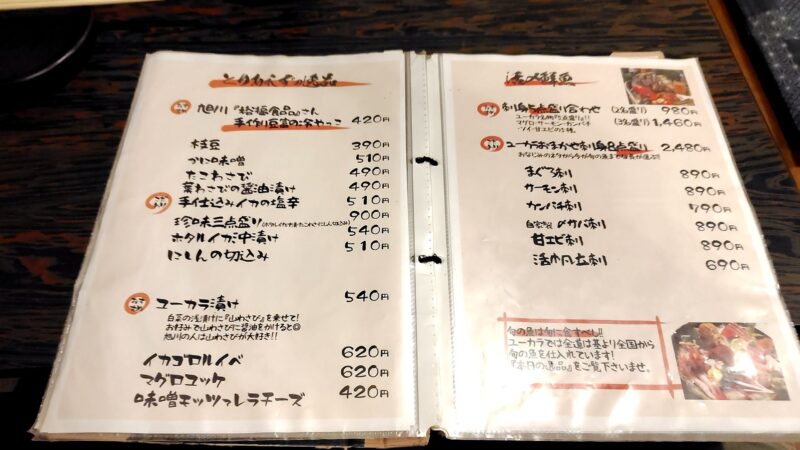 とりあえずの逸品
旭川『裕福食品』さん
手作り豆富の冷やっこ 420円
枝豆 390円
かに味噌 510円
たこわさび 490円
葉わさびの醤油漬け 490円
手仕込みイカの塩辛 510円
珍味三点盛り 900円
ホタルイカ沖漬け 540円
にしんの切込み 510円
ユーカラ漬け 540円
白菜の浅漬けに『山わさび』を乗せて!
お好みで山わさびに醤油をかけると◎
旭川の人は山わさびが大好き!!
イカゴロルイベ 620円
マグロユッケ 620円
味噌モッツァレラチーズ 420円
刺身5点盛り合わせ (2名盛り) 980円
ユーカラ名物『5点盛り』!! (3名盛り) 1,460円
マグロ・サーモン・カンパチ
・ソイ・甘エビの5種。
ユーカラおまかせ刺身8点盛り 2,480円
おなじみのネタから今が旬の魚まで店長が選ぶ!!
まぐろ刺 890円
サーモン刺 890円
カンパチ刺 790円
自家製〆サバ刺 890円
甘エビ刺 890円
活ホタテ刺 690円
旬の魚は旬に食すべし!!
ユーカラでは全道は基より全国から
旬の魚を仕入れています!
『本日の逸品』をご覧下さいませ。